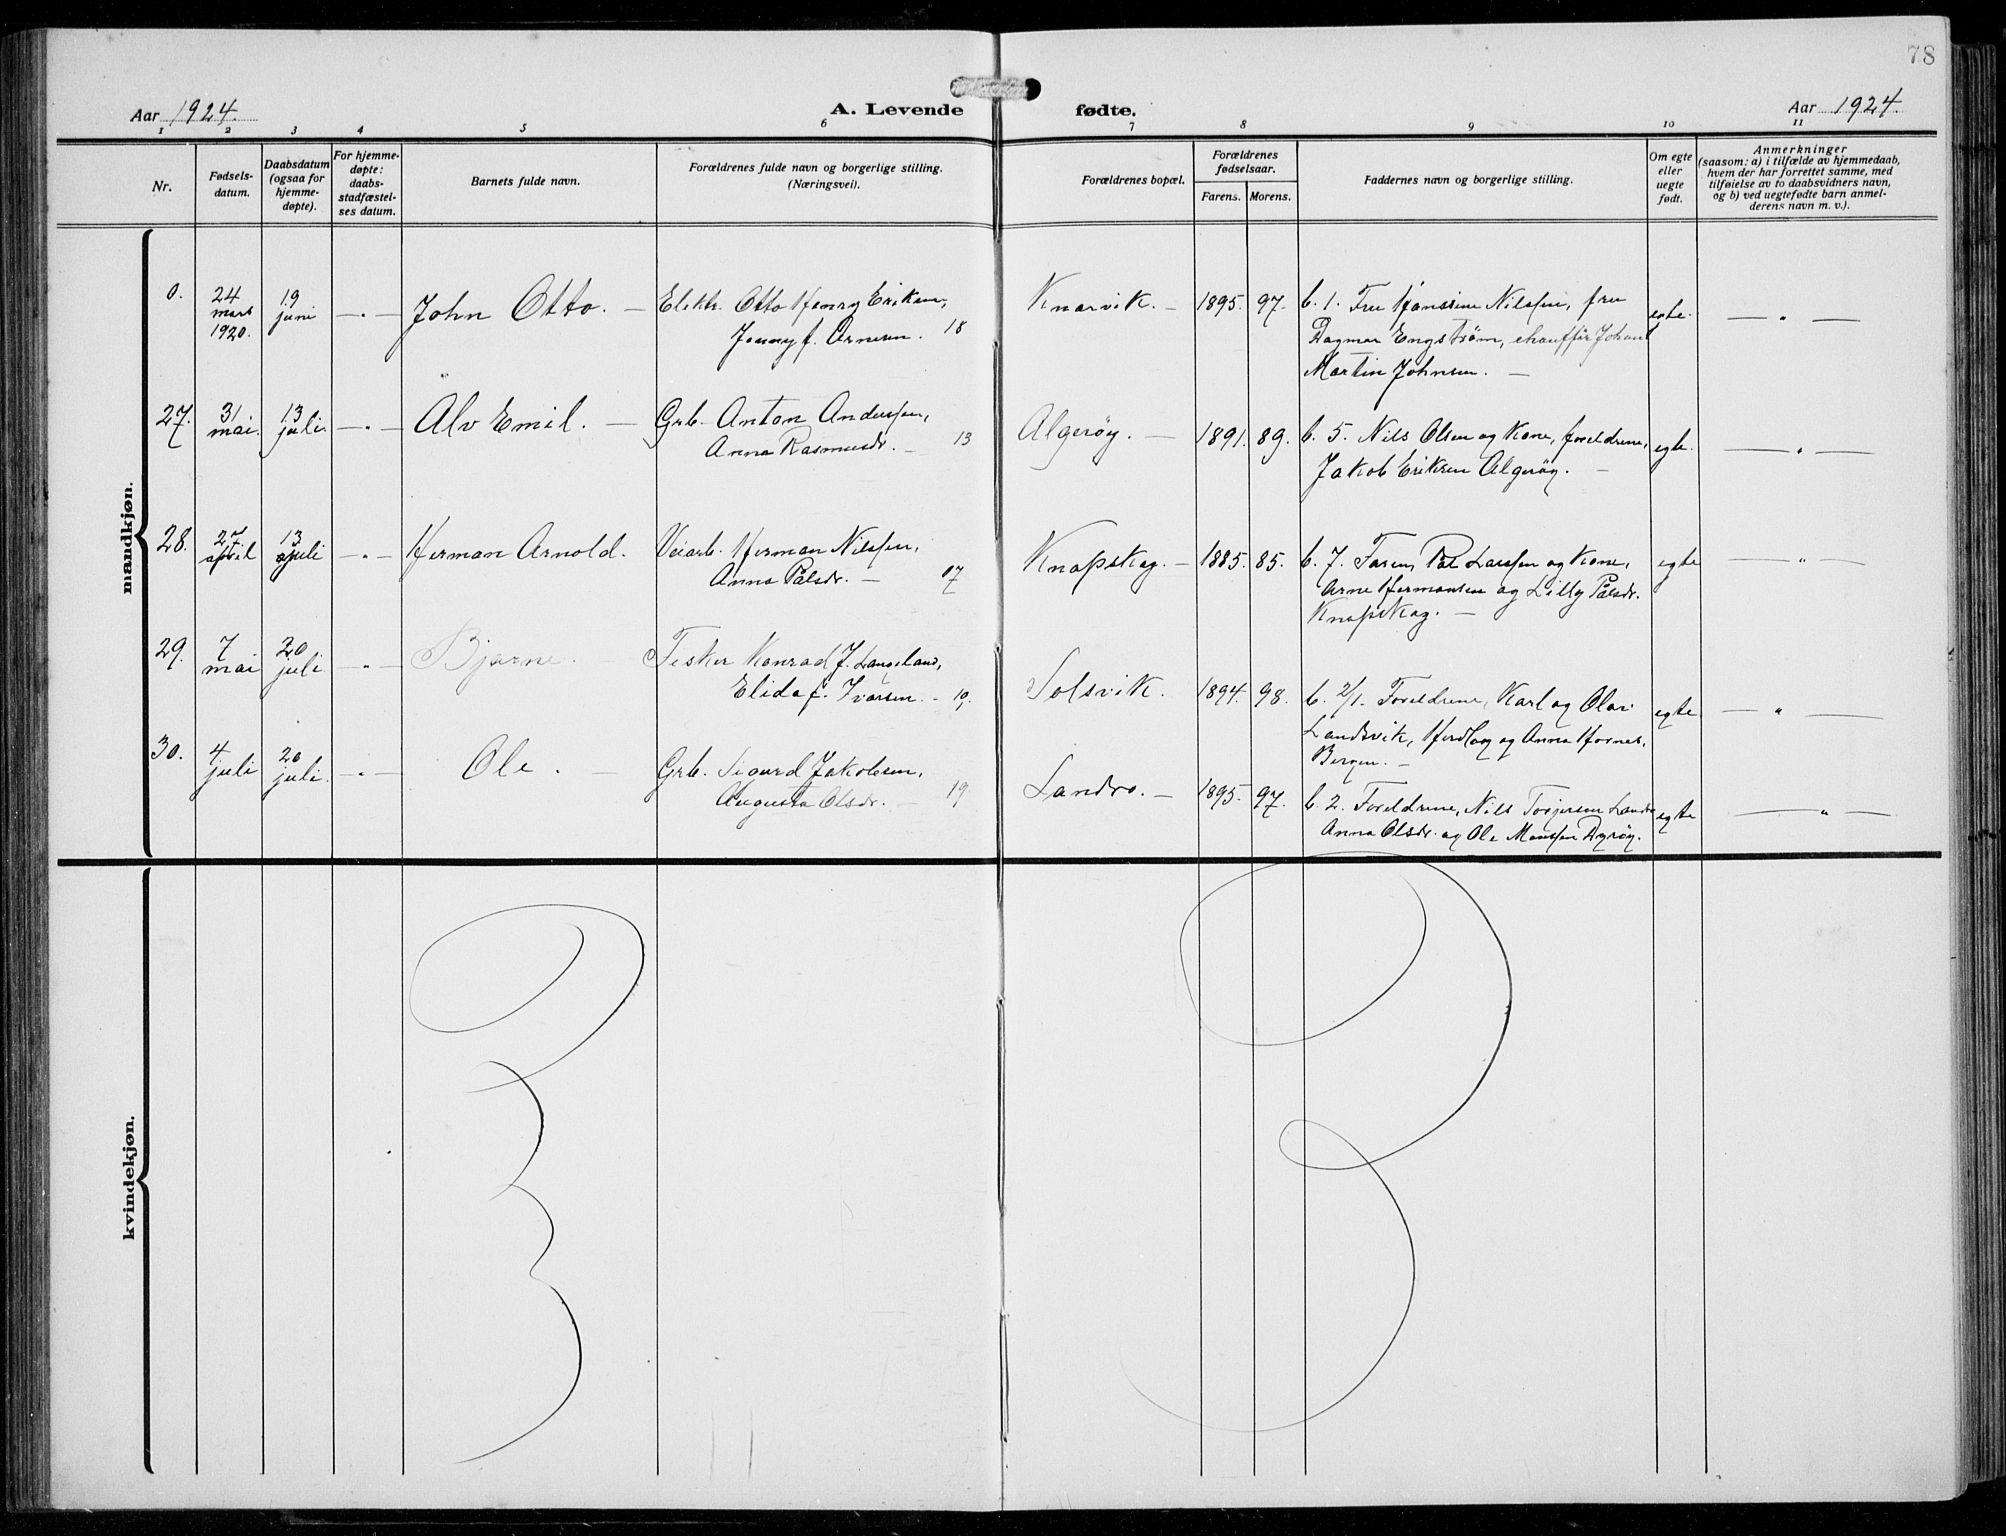 78
Aar 1924.
A. Levende fødte.
Aar 1924.
1 2 3 4 5 6 7 8 9 10 11
Nr.
Fødsels-
datum.
Daabsdatum
(ogsaa for
hjemme-
døpte).
For hjemme-
døpte:
daabs-
stadfæstel-
ses datum.
Barnets fulde navn.
Forældrenes fulde navn og borgerlige stilling.
(Næringsvei).
Forældrenes bopæl.
Forældrenes
fødselsaar.
Farens. Morens.
Faddernes navn og borgerlige stilling.
Om egte
eller
uegte
født.
Anmerkninger
(saasom: a) i tilfælde av hjemmedaab,
hvem der har forrettet samme, med
tilføielse av to daabsvidners navn,
og b) ved uegtefødte barn anmel-
derens navn m. v.).
mandkjøn.
0. 24 mars 1920. 19 juni — " — John Otto. —
Elektr. Otto Henry Eriksen,
Jenny f. Arnesen. 18
Knarvik. — 1895. 97.
b. 1. Fru Hanssine Nilssen, fru
Dagmar Engstrøm, chauffør Johan
Martin Johnsen. —
egte. — " —
27. 31 mai. 13 juli. — " — Alv Emil. —
Grb. Anton Anderssen,
Anna Rasmusdr. — 13
Algerøy. — 1891. 89.
b. 5. Nils Olsen og Kone, foreldrene,
Jakob Eriksen Algerøy. —
egte. — " —
28. 27 april 13 juli — " — Herman Arnold.
Veiarb. Herman Nilssen,
Anna Pålsdr. — 07
Knapskog. — 1885. 85.
b. 7. Faren, Pål Larssen og Kone,
Arne Hermansen og Lilly Pålsdr.
Knapskog. —
egte — " —
29. 7 mai 20 juli — " — Bjarne. —
Fisker Konrad J. Langeland,
Elida f. Ivarsen. — 19.
Solsvik. 1894. 98.
b. 2/1. Foreldrene, Karl og Olai
Landsvik, og Anna
Bergen. —
egte — " —
30. 4 juli 20 juli. — " — Ole. —
Grb. Sigurd Jakobsen,
Augusta Olsdr. — 19
Landro. — 1895. 97.
b. 2. Foreldrene, Nils Torjersen Landro
Anna Olsdr. og Ole Monssen Dyrøy.
egte — " —
kvindekjøn.